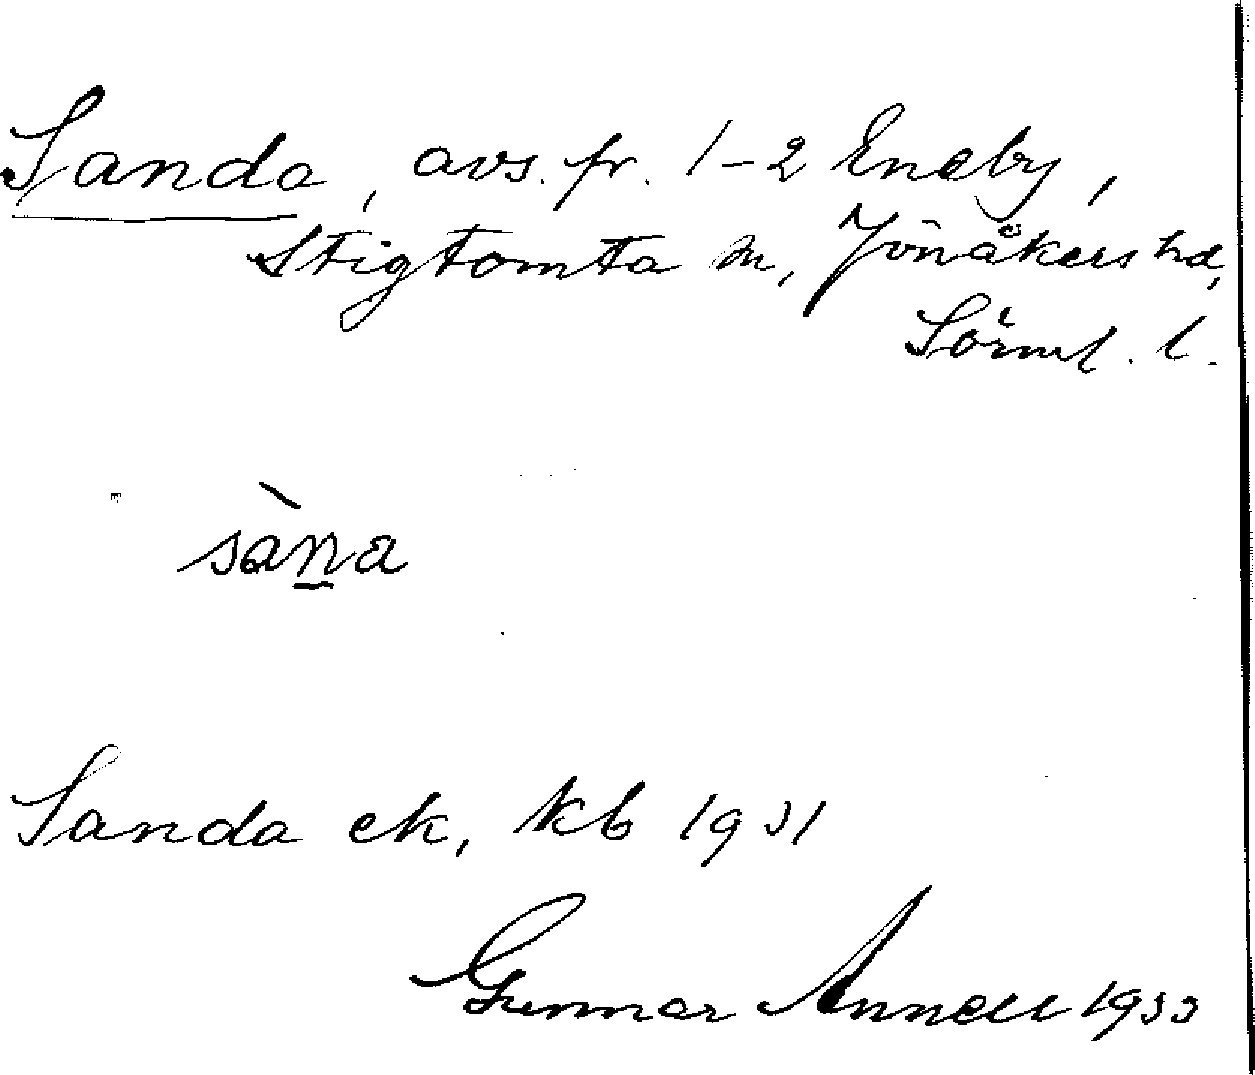 Sanda, avs. fr. 1-2 Eneby,
Stigtomta sn, Jönåkers hd,
Sörml. l.
sàṉa
Sanda ek, kb 1931
Gunnar Annell 1933